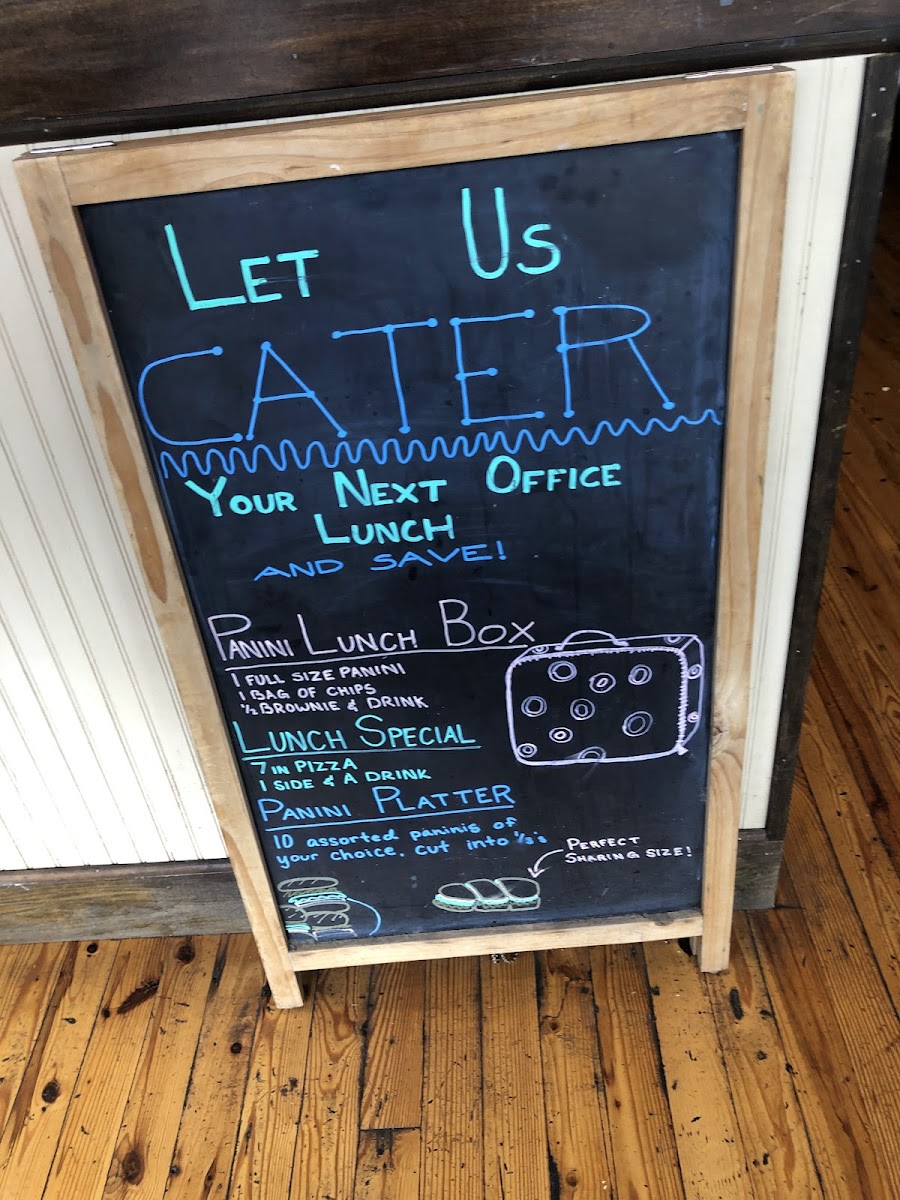 LET US
CATER
YOUR NEXT OFFICE
LUNCH
AND SAVE!
PANINI LUNCH BOX
1 FULL SIZE PANINI
1 BAG OF CHIPS
½ BROWNIE & DRINK
LUNCH SPECIAL
7 IN PIZZA
1 SIDE & A DRINK
PANINI PLATTER
10 assorted paninis of
your choice. cut into ⅓'s
PERFECT
SHARING SIZE!